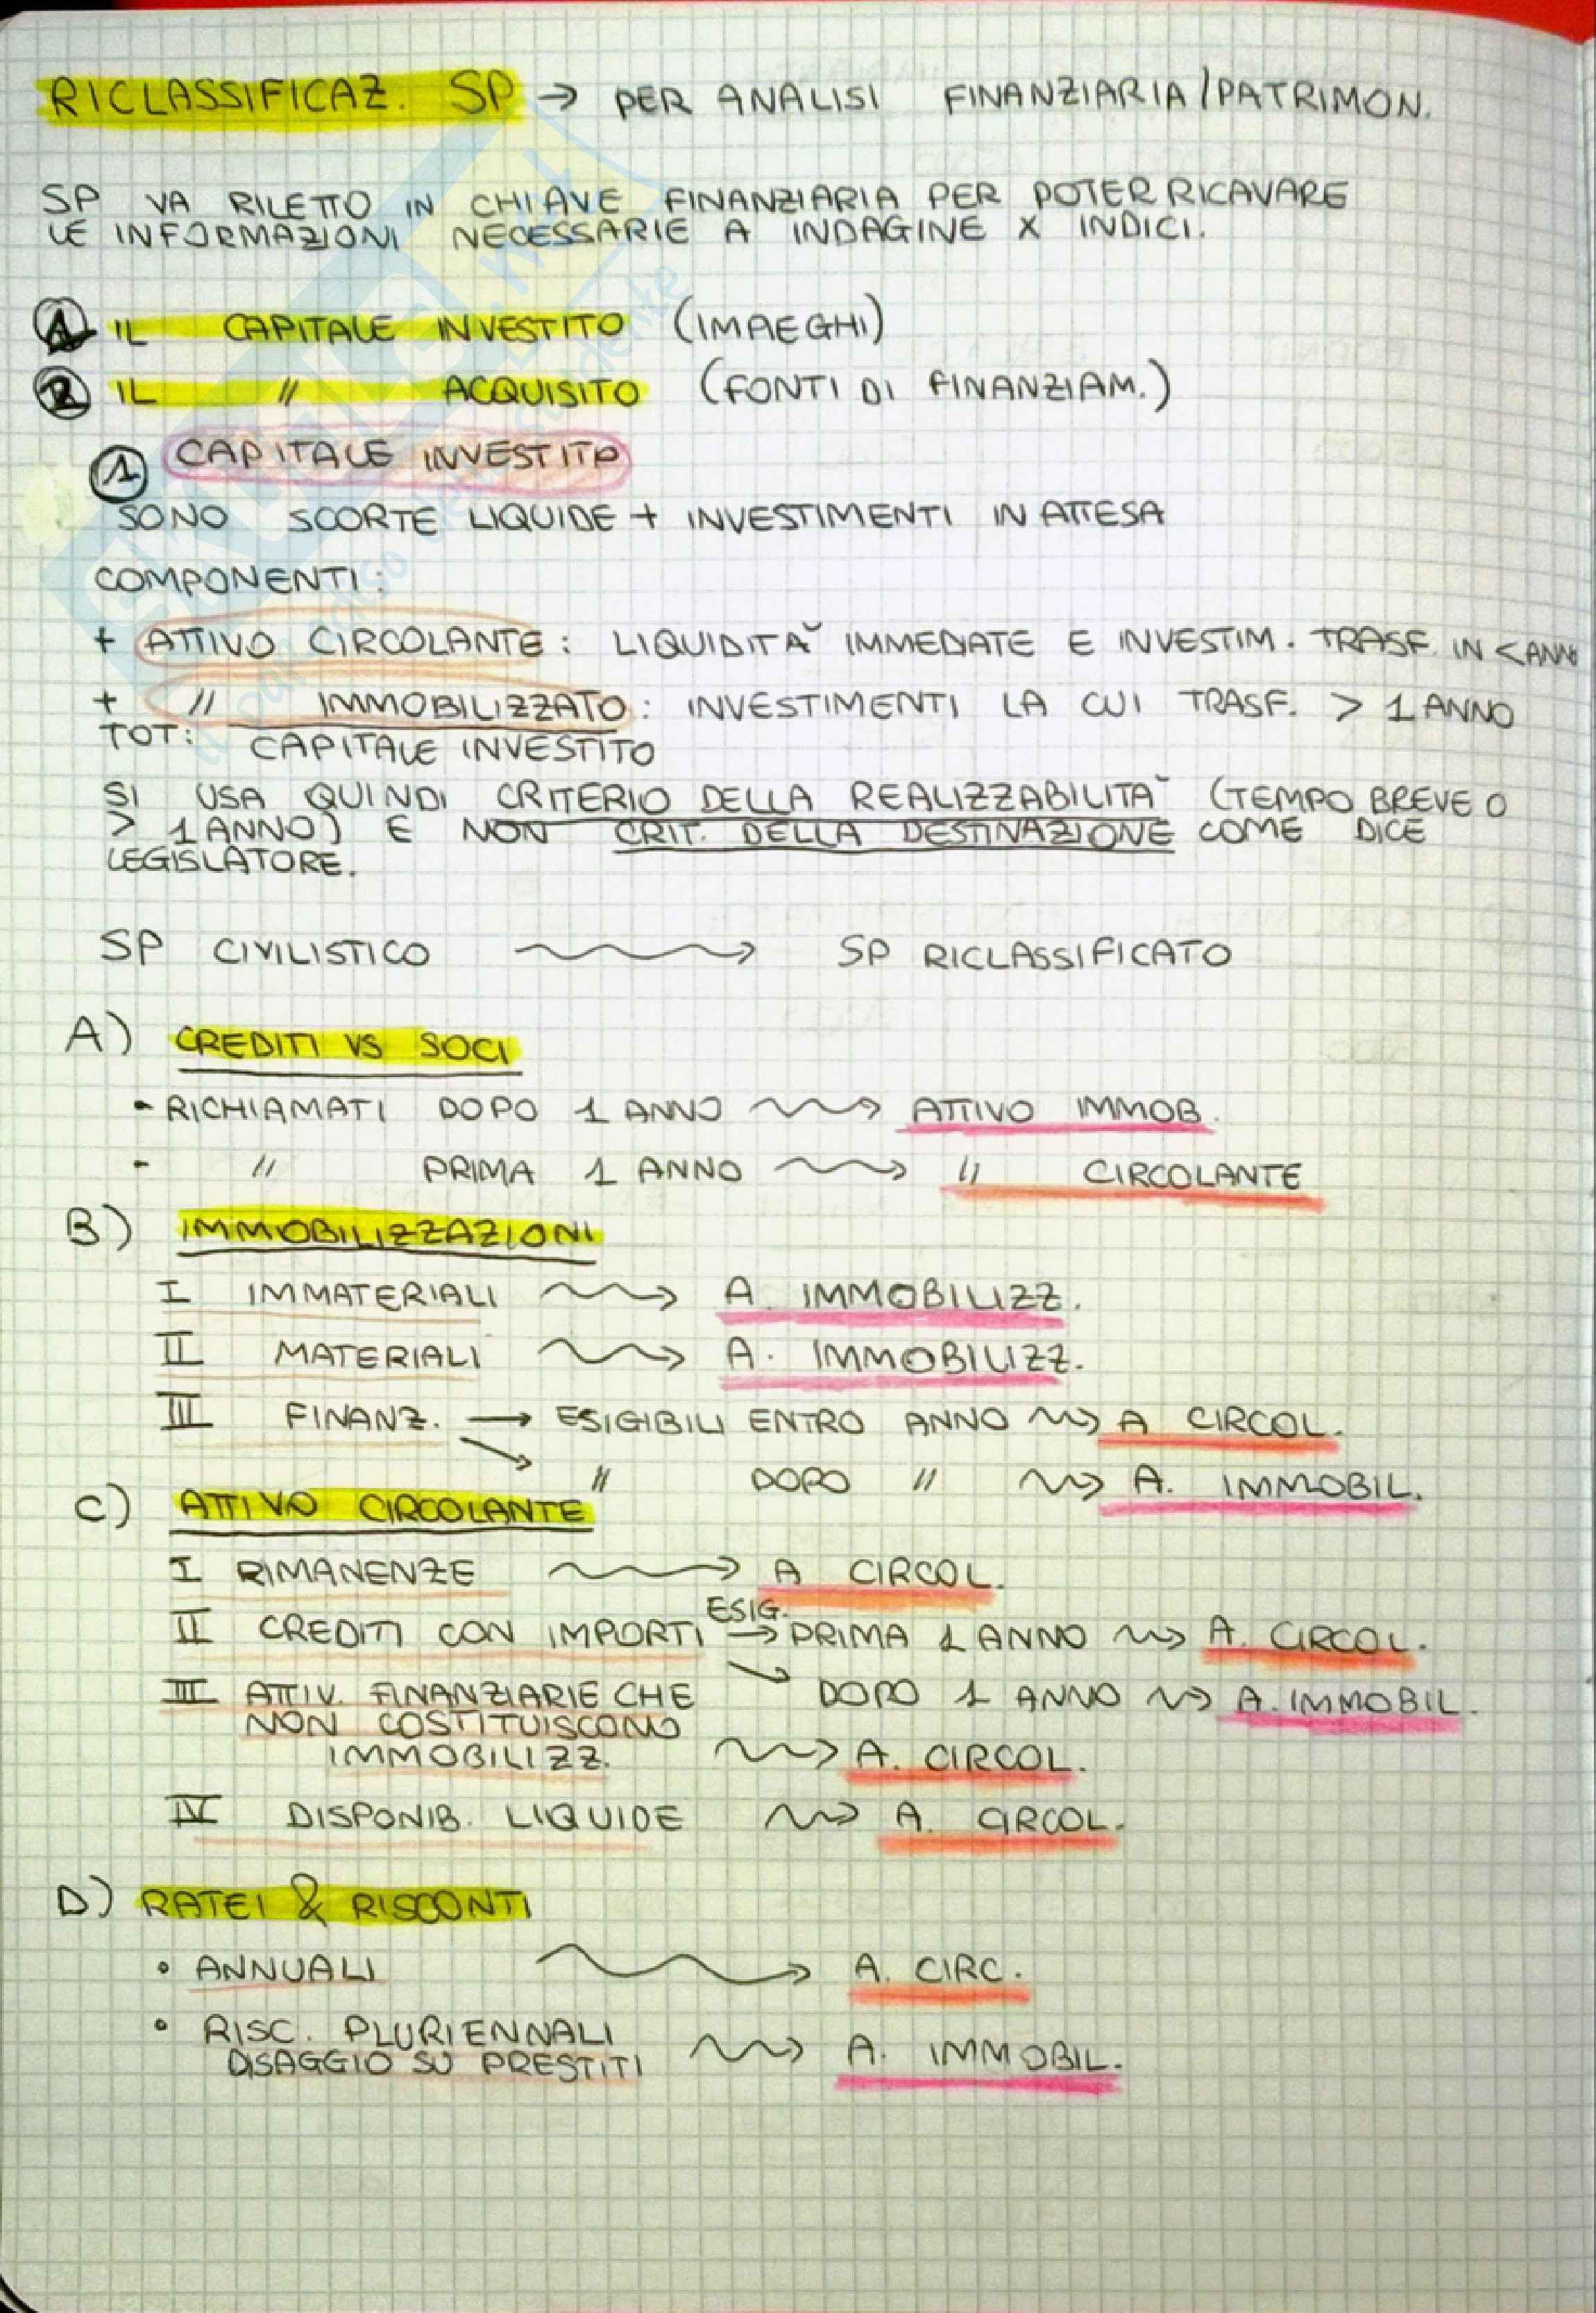 RICLASSIFICAZ. SP → PER ANALISI FINANZIARIA/PATRIMON.
SP VA RILETTO IN CHIAVE FINANZIARIA PER POTER RICAVARE
LE INFORMAZIONI NECESSARIE A INDAGINE X INDICI.
1 IL CAPITALE INVESTITO (IMPIEGHI)
2 IL " ACQUISITO (FONTI DI FINANZIAM.)
1 CAPITALE INVESTITO
SONO SCORTE LIQUIDE + INVESTIMENTI IN ATTESA
COMPONENTI:
+ ATTIVO CIRCOLANTE: LIQUIDITA' IMMEDIATE E INVESTIM. TRASF. IN < ANNO
+ " IMMOBILIZZATO: INVESTIMENTI LA CUI TRASF. > 1 ANNO
TOT: CAPITALE INVESTITO
SI USA QUINDI CRITERIO DELLA REALIZZABILITA' (TEMPO BREVE O
> 1 ANNO) E NON CRIT. DELLA DESTINAZIONE COME DICE
LEGISLATORE.
SP CIVILISTICO → SP RICLASSIFICATO
A) CREDITI VS SOCI
- RICHIAMATI DOPO 1 ANNO → ATTIVO IMMOB.
- " PRIMA 1 ANNO → " CIRCOLANTE
B) IMMOBILIZZAZIONI
I IMMATERIALI → A. IMMOBILIZZ.
II MATERIALI → A. IMMOBILIZZ.
III FINANZ. → ESIGIBILI ENTRO ANNO → A CIRCOL.
→ " DOPO " → A. IMMOBIL.
C) ATTIVO CIRCOLANTE
I RIMANENZE → A CIRCOL.
II CREDITI CON IMPORTI ESIG. → PRIMA 1 ANNO → A. CIRCOL.
→ DOPO 1 ANNO → A. IMMOBIL.
III ATTIV. FINANZIARIE CHE
NON COSTITUISCONO
IMMOBILIZZ. → A. CIRCOL.
IV DISPONIB. LIQUIDE → A. CIRCOL.
D) RATEI & RISCONTI
• ANNUALI → A. CIRC.
• RISC. PLURIENNALI
DISAGGIO SU PRESTITI → A. IMMOBIL.